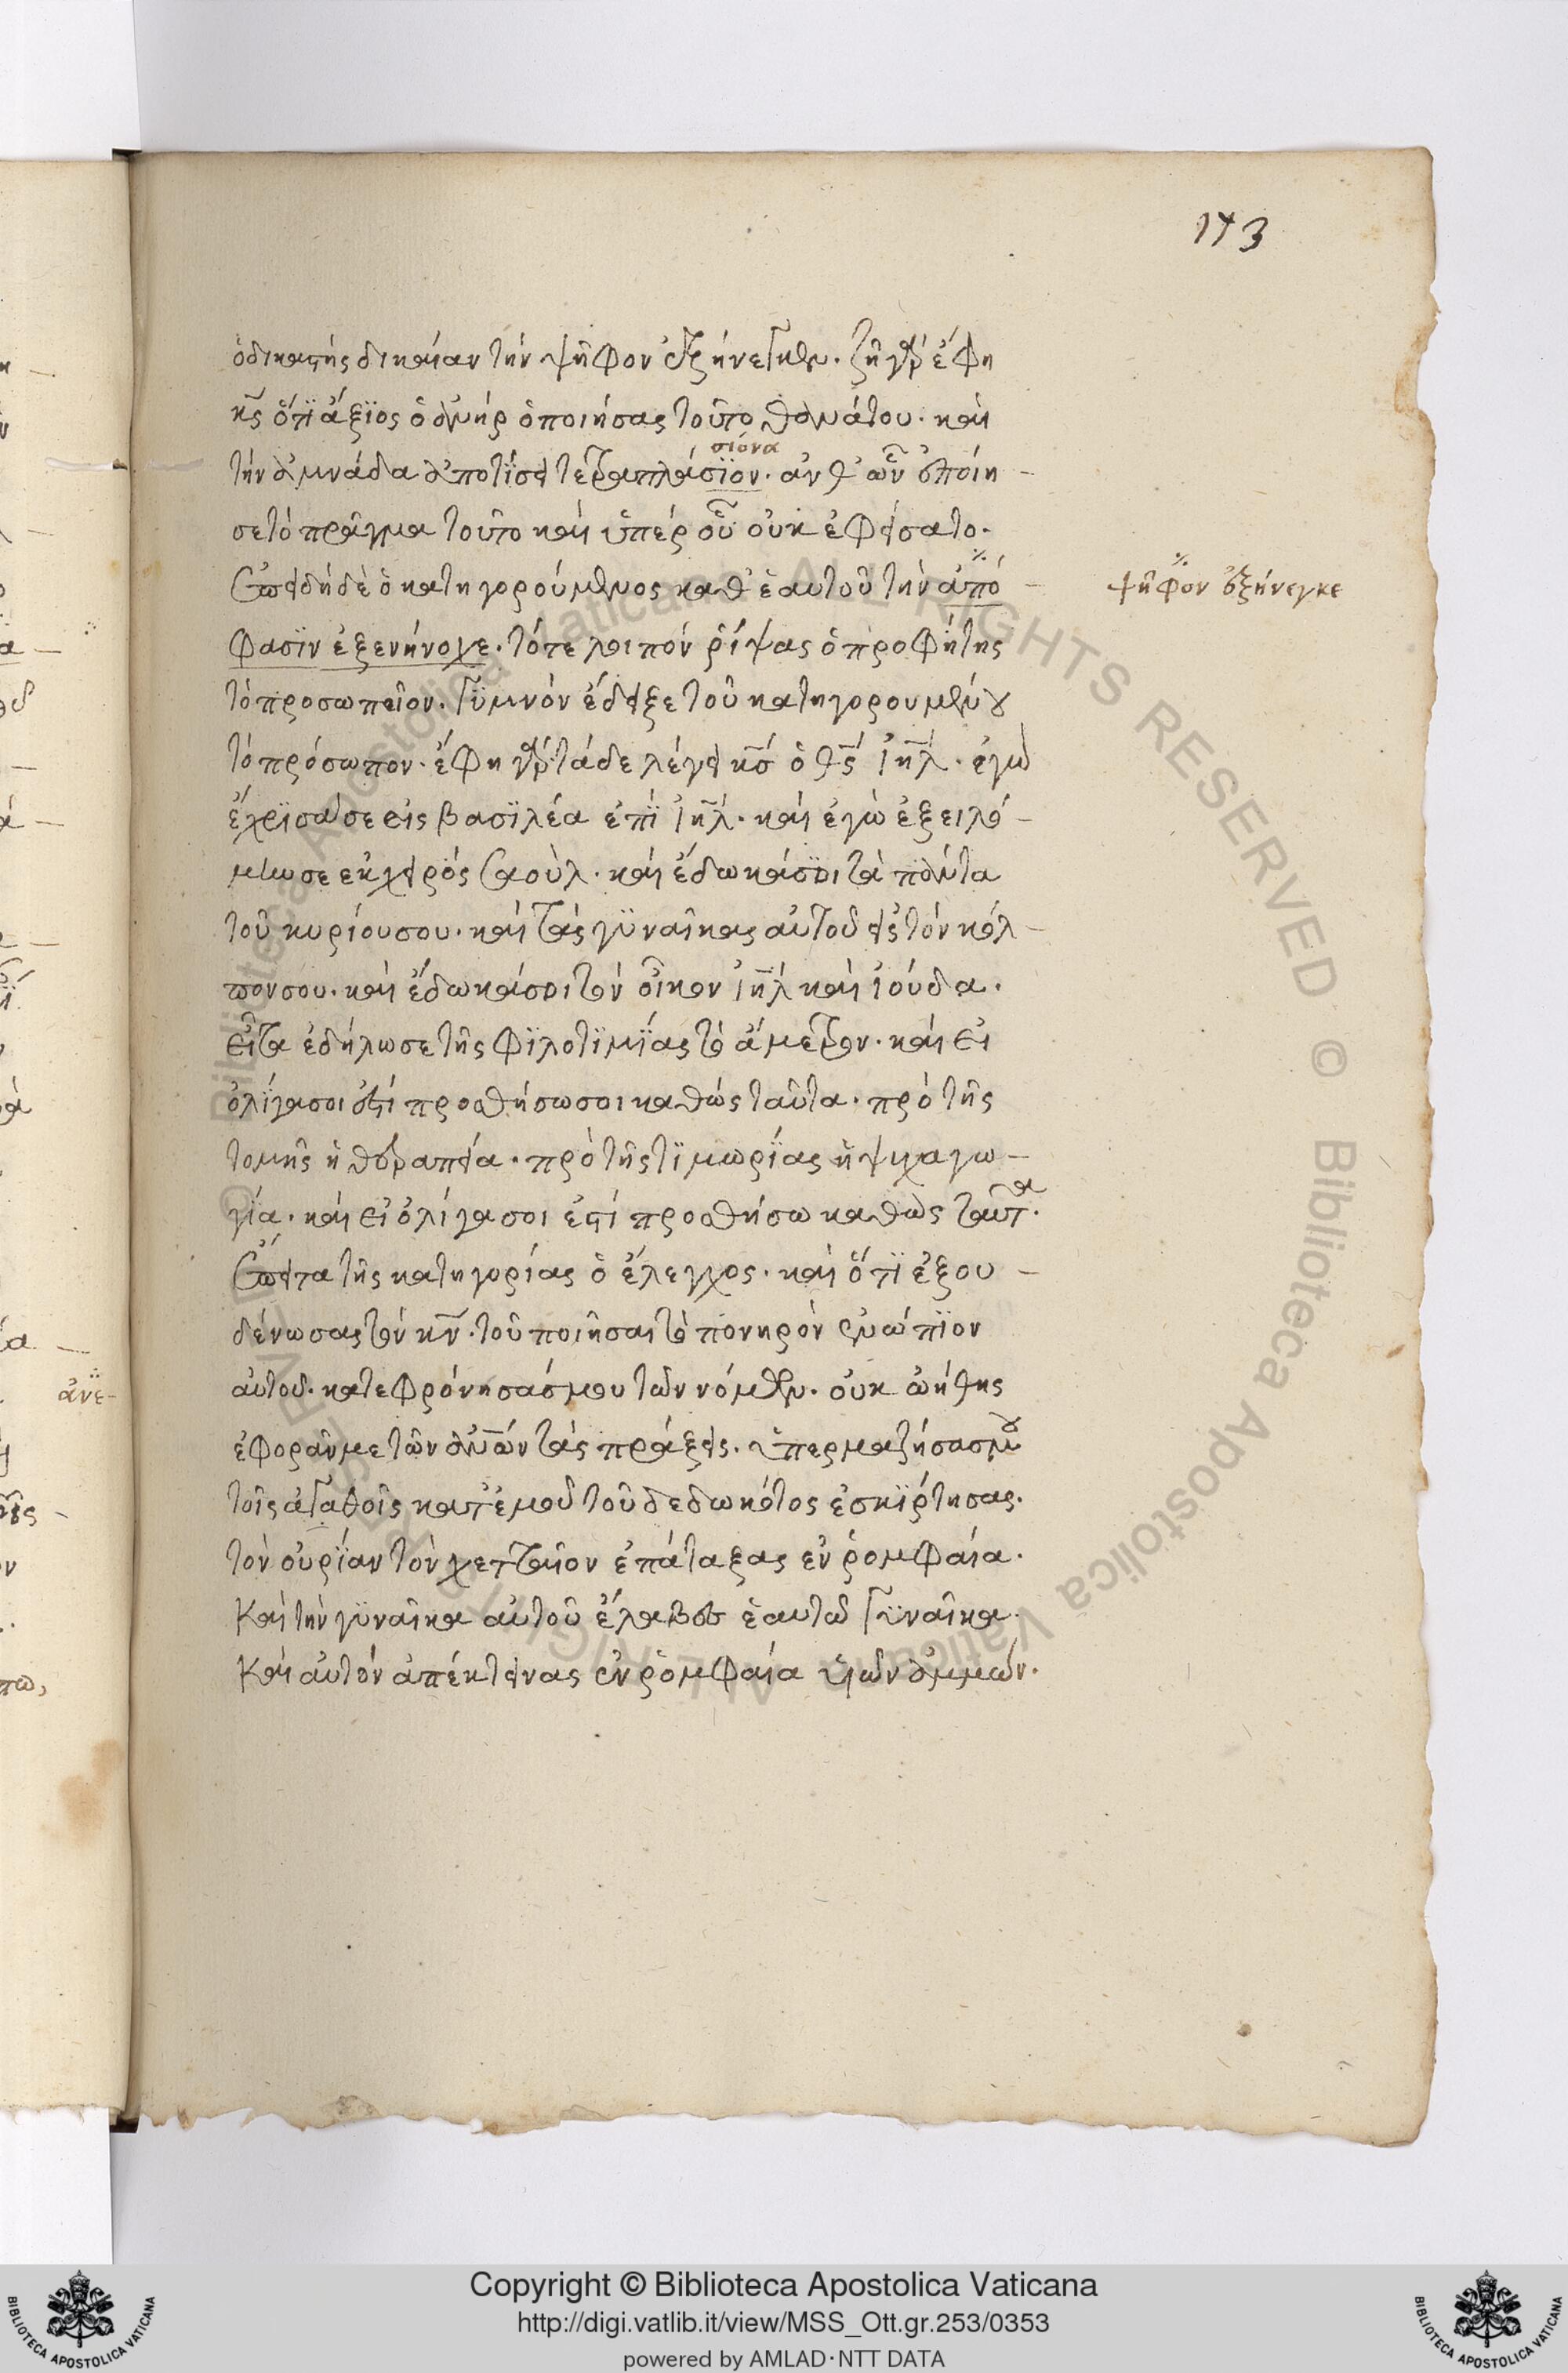 173
ὁ δικαστής δικαίαν τὴν ψῆφον ἐξήνεγκεν. ζῆ γὰρ ἔφη
κς ὅτι ἄξιος ὁ ἀνὴρ ὁ ποιήσας τοῦτο θανάτου. καὶ
σιόνα
τὴν ἀμνάδα ἀποτίσει τετραπλάσιον. ἀνθ' ὧν ἐποίη -
σε τὸ πρᾶγμα τοῦτο καὶ ὑπὲρ οὗ οὐκ ἐφείσατο.
ἐπειδὴ δὲ ὁ κατηγορούμενος καθ' ἑαυτοῦ τὴν ἀπό -
ψῆφον ἐξήνεγκε
φασιν ἐξενήνοχε. τότε λοιπόν ῥίψας ὁ προφήτης
τὸ προσωπεῖον. γυμνὸν ἔδειξε τοῦ κατηγορουμένου
τὸ πρόσωπον. ἔφη γὰρ τάδε λέγει κς ὁ θς ιηλ. ἐγὼ
ἔχρισά σε εἰς βασιλέα ἐπὶ ιηλ. καὶ ἐγὼ ἐξειλό -
μην σε εκ χειρὸς Σαοὺλ. καὶ ἔδωκά σοι τὰ πάντα
τοῦ κυρίου σου. καὶ τὰς γυναῖκας αὐτοῦ εἰς τὸν κόλ -
πον σου. καὶ ἔδωκά σοι τὸν οἶκον ιηλ καὶ ἰούδα.
εἶτα ἐδήλωσε τῆς φιλοτιμίας τὸ ἄμετρον. καὶ εἰ
ὀλίγα σοι ἐστί προσθήσω σοι καθὼς ταῦτα. πρὸ τῆς
τομῆς ἡ θεραπεία. πρὸ τῆς τιμωρίας ἡ ψυχαγω -
γία. καὶ εἰ ὀλίγα σοι ἐστί προσθήσω καθὼς ταῦτα.
ἔπειτα τῆς κατηγορίας ὁ ἔλεγχος. καὶ ὅτι ἐξου -
δένωσας τὸν κν. τοῦ ποιῆσαι τὸ πονηρὸν ἐνώπιον
αὐτοῦ. κατεφρόνησάς μου τῶν νόμων. οὐκ ᾠήθης
ἐφορᾶν με τῶν ἀνων τὰς πράξεις. ὑπερμαζήσας μου
τοῖς ἀγαθοῖς κατ' ἐμοῦ τοῦ δεδωκότος ἐσκίρτησας.
τὸν οὐρίαν τὸν χετταῖον ἐπάταξας ἐν ῥομφαία.
Καὶ τὴν γυναῖκα αὐτοῦ ἔλαβες ἑαυτῶ γυναῖκα.
Καὶ αὐτὸν ἀπέκτεινας ἐν ῥομφαία υἱῶν ἀμμών.
Copyright © Biblioteca Apostolica Vaticana
http://digi.vatlib.it/view/MSS_Ott.gr.253/0353
powered by AMLAD·NTT DATA